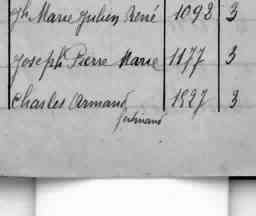 Jh Marie Julien René 1092 3
Joseph Pierre Marie 1177 3
Charles Armand 1527 3
Ferdinand